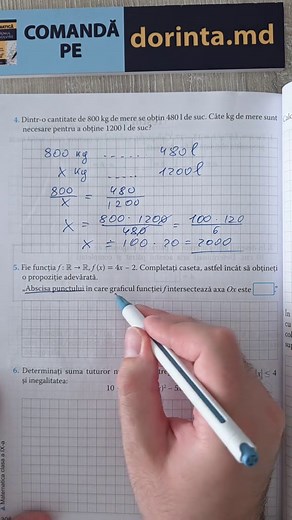 COMANDĂ
PE
dorinta.md
4. Dintr-o cantitate de 800 kg de mere se obțin 480 l de suc. Câte kg de mere sunt
necesare pentru a obține 1200 l de suc?
800 kg ..... 480 l
x kg ..... 1200 l
800/x = 480/1200
x = 800 · 1200/480 = 100 · 120/6
x = 100 · 20 = 2000
5. Fie funcția f : ℝ → ℝ, f(x) = 4x − 2. Completați caseta, astfel încât să obțineți
o propoziție adevărată.
„Abscisa punctului în care graficul funcției f intersectează axa Ox este □”
6. Determinați suma tuturor
≤ 4
și inegalitatea:
10
Matematica clasa a IX-a